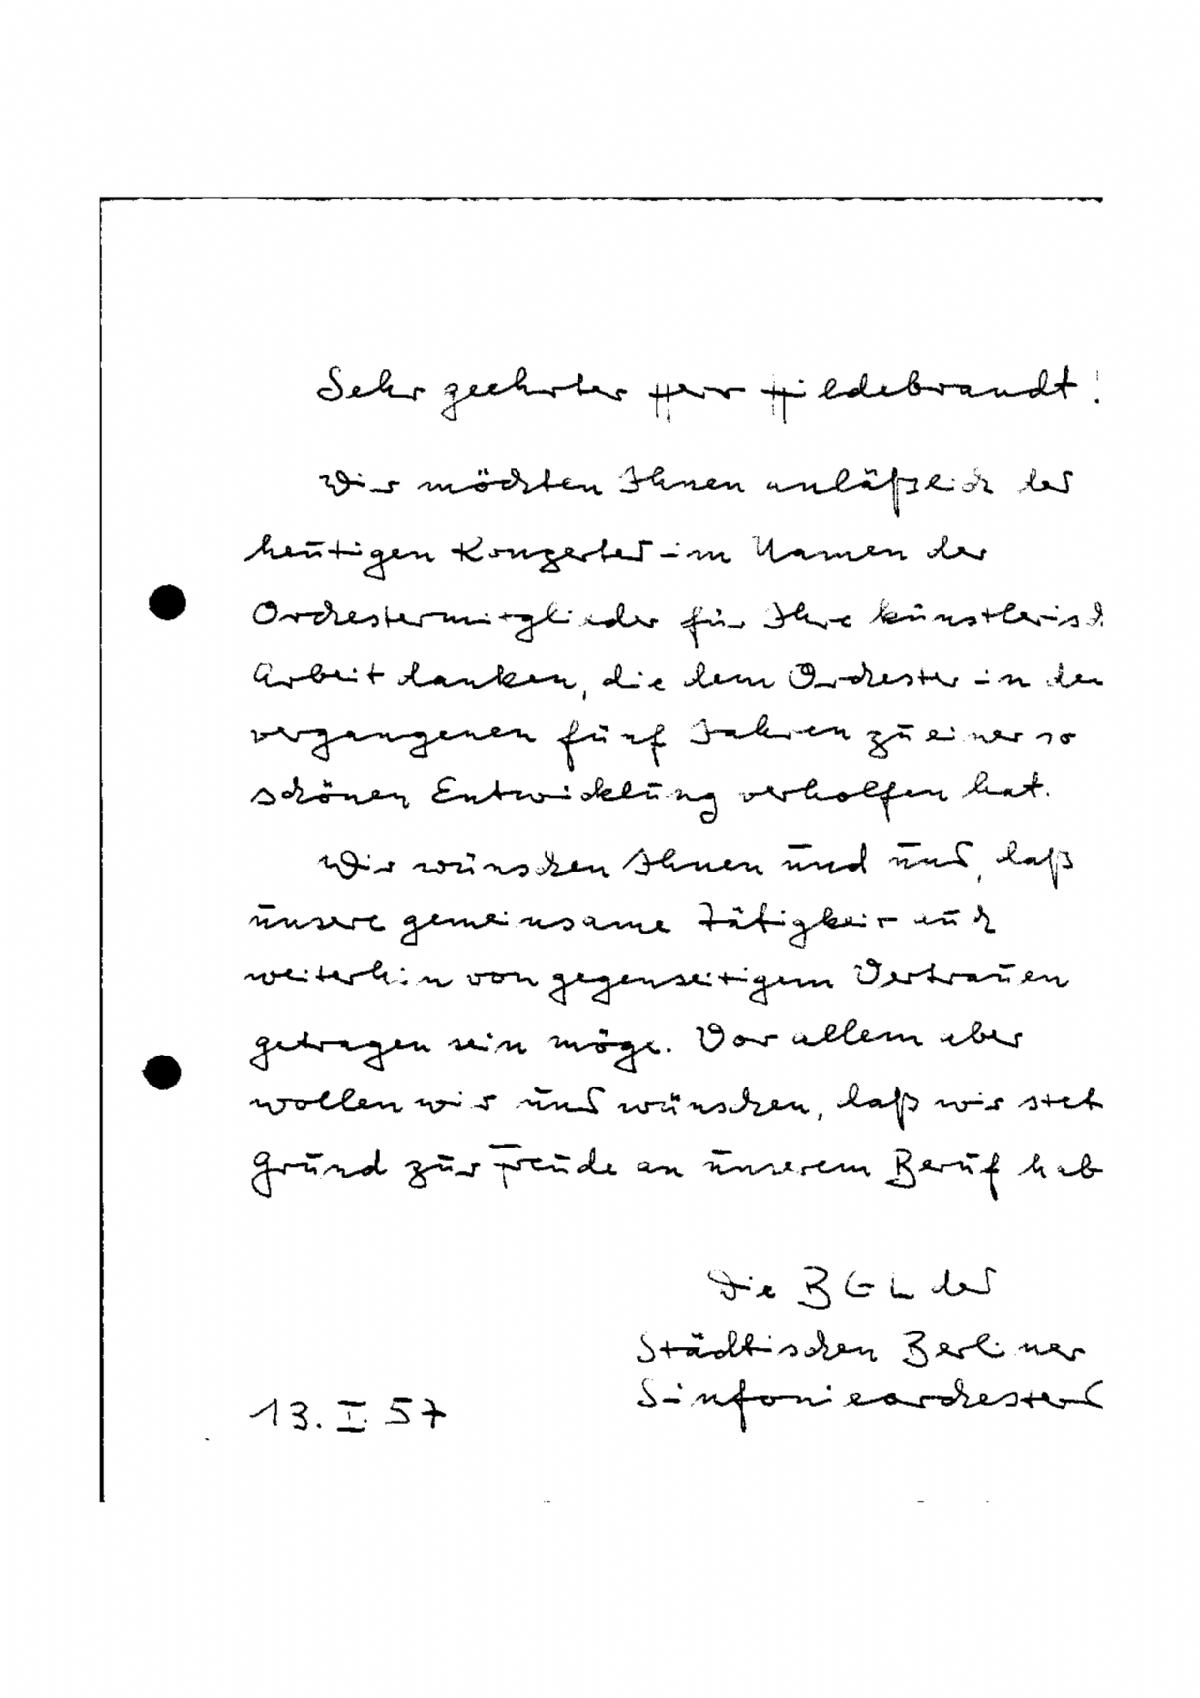 Sehr geehrter Herr Hildebrandt!
Wir möchten Ihnen anläßlich des
heutigen Konzertes im Namen der
Orchestermitglieder für Ihre künstlerisch
Arbeit danken, die dem Orchester in den
vergangenen fünf Jahren zu einer so
schönen Entwicklung verholfen hat.
Wir wünschen Ihnen und uns, daß
unsere gemeinsame Tätigkeit auch
weiterhin von gegenseitigem Vertrauen
getragen sein möge. Vor allem aber
wollen wir uns wünschen, daß wir stet
Grund zur Freude an unserem Beruf hab
Die BGL des
Städtischen Berliner
Sinfonieorchesters
13. I. 57